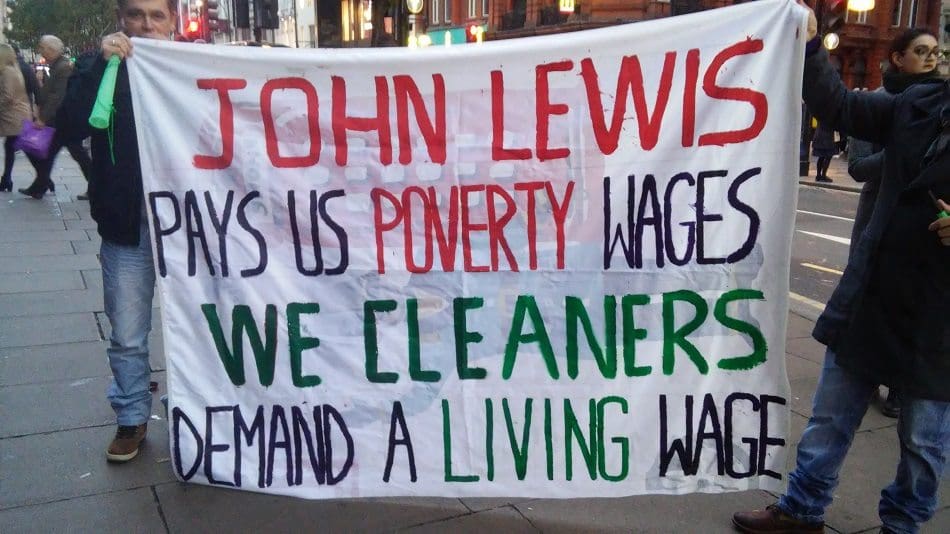 JOHN LEWIS
PAYS US POVERTY WAGES
WE CLEANERS
DEMAND A LIVING WAGE